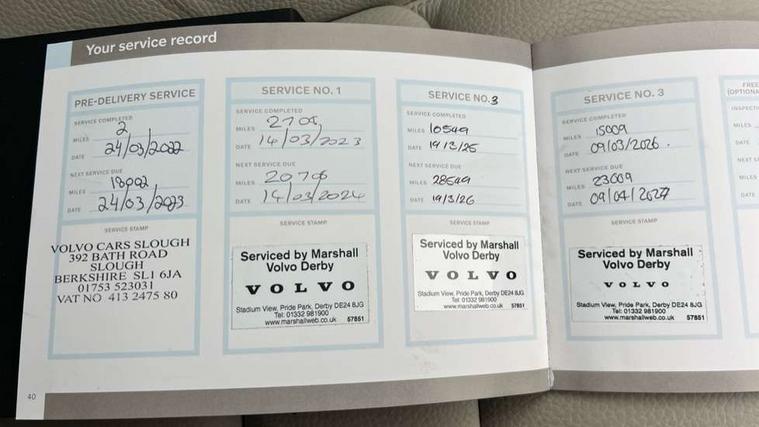 Your service record
PRE-DELIVERY SERVICE
SERVICE COMPLETED
MILES 2
DATE 24/03/2022
NEXT SERVICE DUE
MILES 18002
DATE 24/03/2023
SERVICE STAMP
VOLVO CARS SLOUGH
392 BATH ROAD
SLOUGH
BERKSHIRE SL1 6JA
01753 523031
VAT NO 413 2475 80
40
SERVICE NO. 1
SERVICE COMPLETED
MILES
DATE 14/03/2023
NEXT SERVICE DUE
MILES
DATE 14/03/2024
SERVICE STAMP
Serviced by Marshall
Volvo Derby
VOLVO
Stadium View, Pride Park, Derby DE24 8JG
Tel: 01332 981900
www.marshallweb.co.uk 57851
SERVICE NO. 3
SERVICE COMPLETED
MILES 10549
DATE 19/3/25
NEXT SERVICE DUE
MILES 28549
DATE 19/3/26
SERVICE STAMP
Serviced by Marshall
Volvo Derby
VOLVO
Stadium View, Pride Park, Derby DE24 8JG
Tel: 01332 981900
www.marshallweb.co.uk 57851
SERVICE NO. 3
SERVICE COMPLETED
MILES 15009
DATE 09/03/2026.
NEXT SERVICE DUE
MILES
DATE 09/04/2027
SERVICE STAMP
Serviced by Marshall
Volvo Derby
VOLVO
Stadium View, Pride Park, Derby DE24 8JG
Tel: 01332 981900
www.marshallweb.co.uk 57851
FREE
(OPTIONA
INSPECTI
MILES
DATE
NEXT SE
MILES
DATE